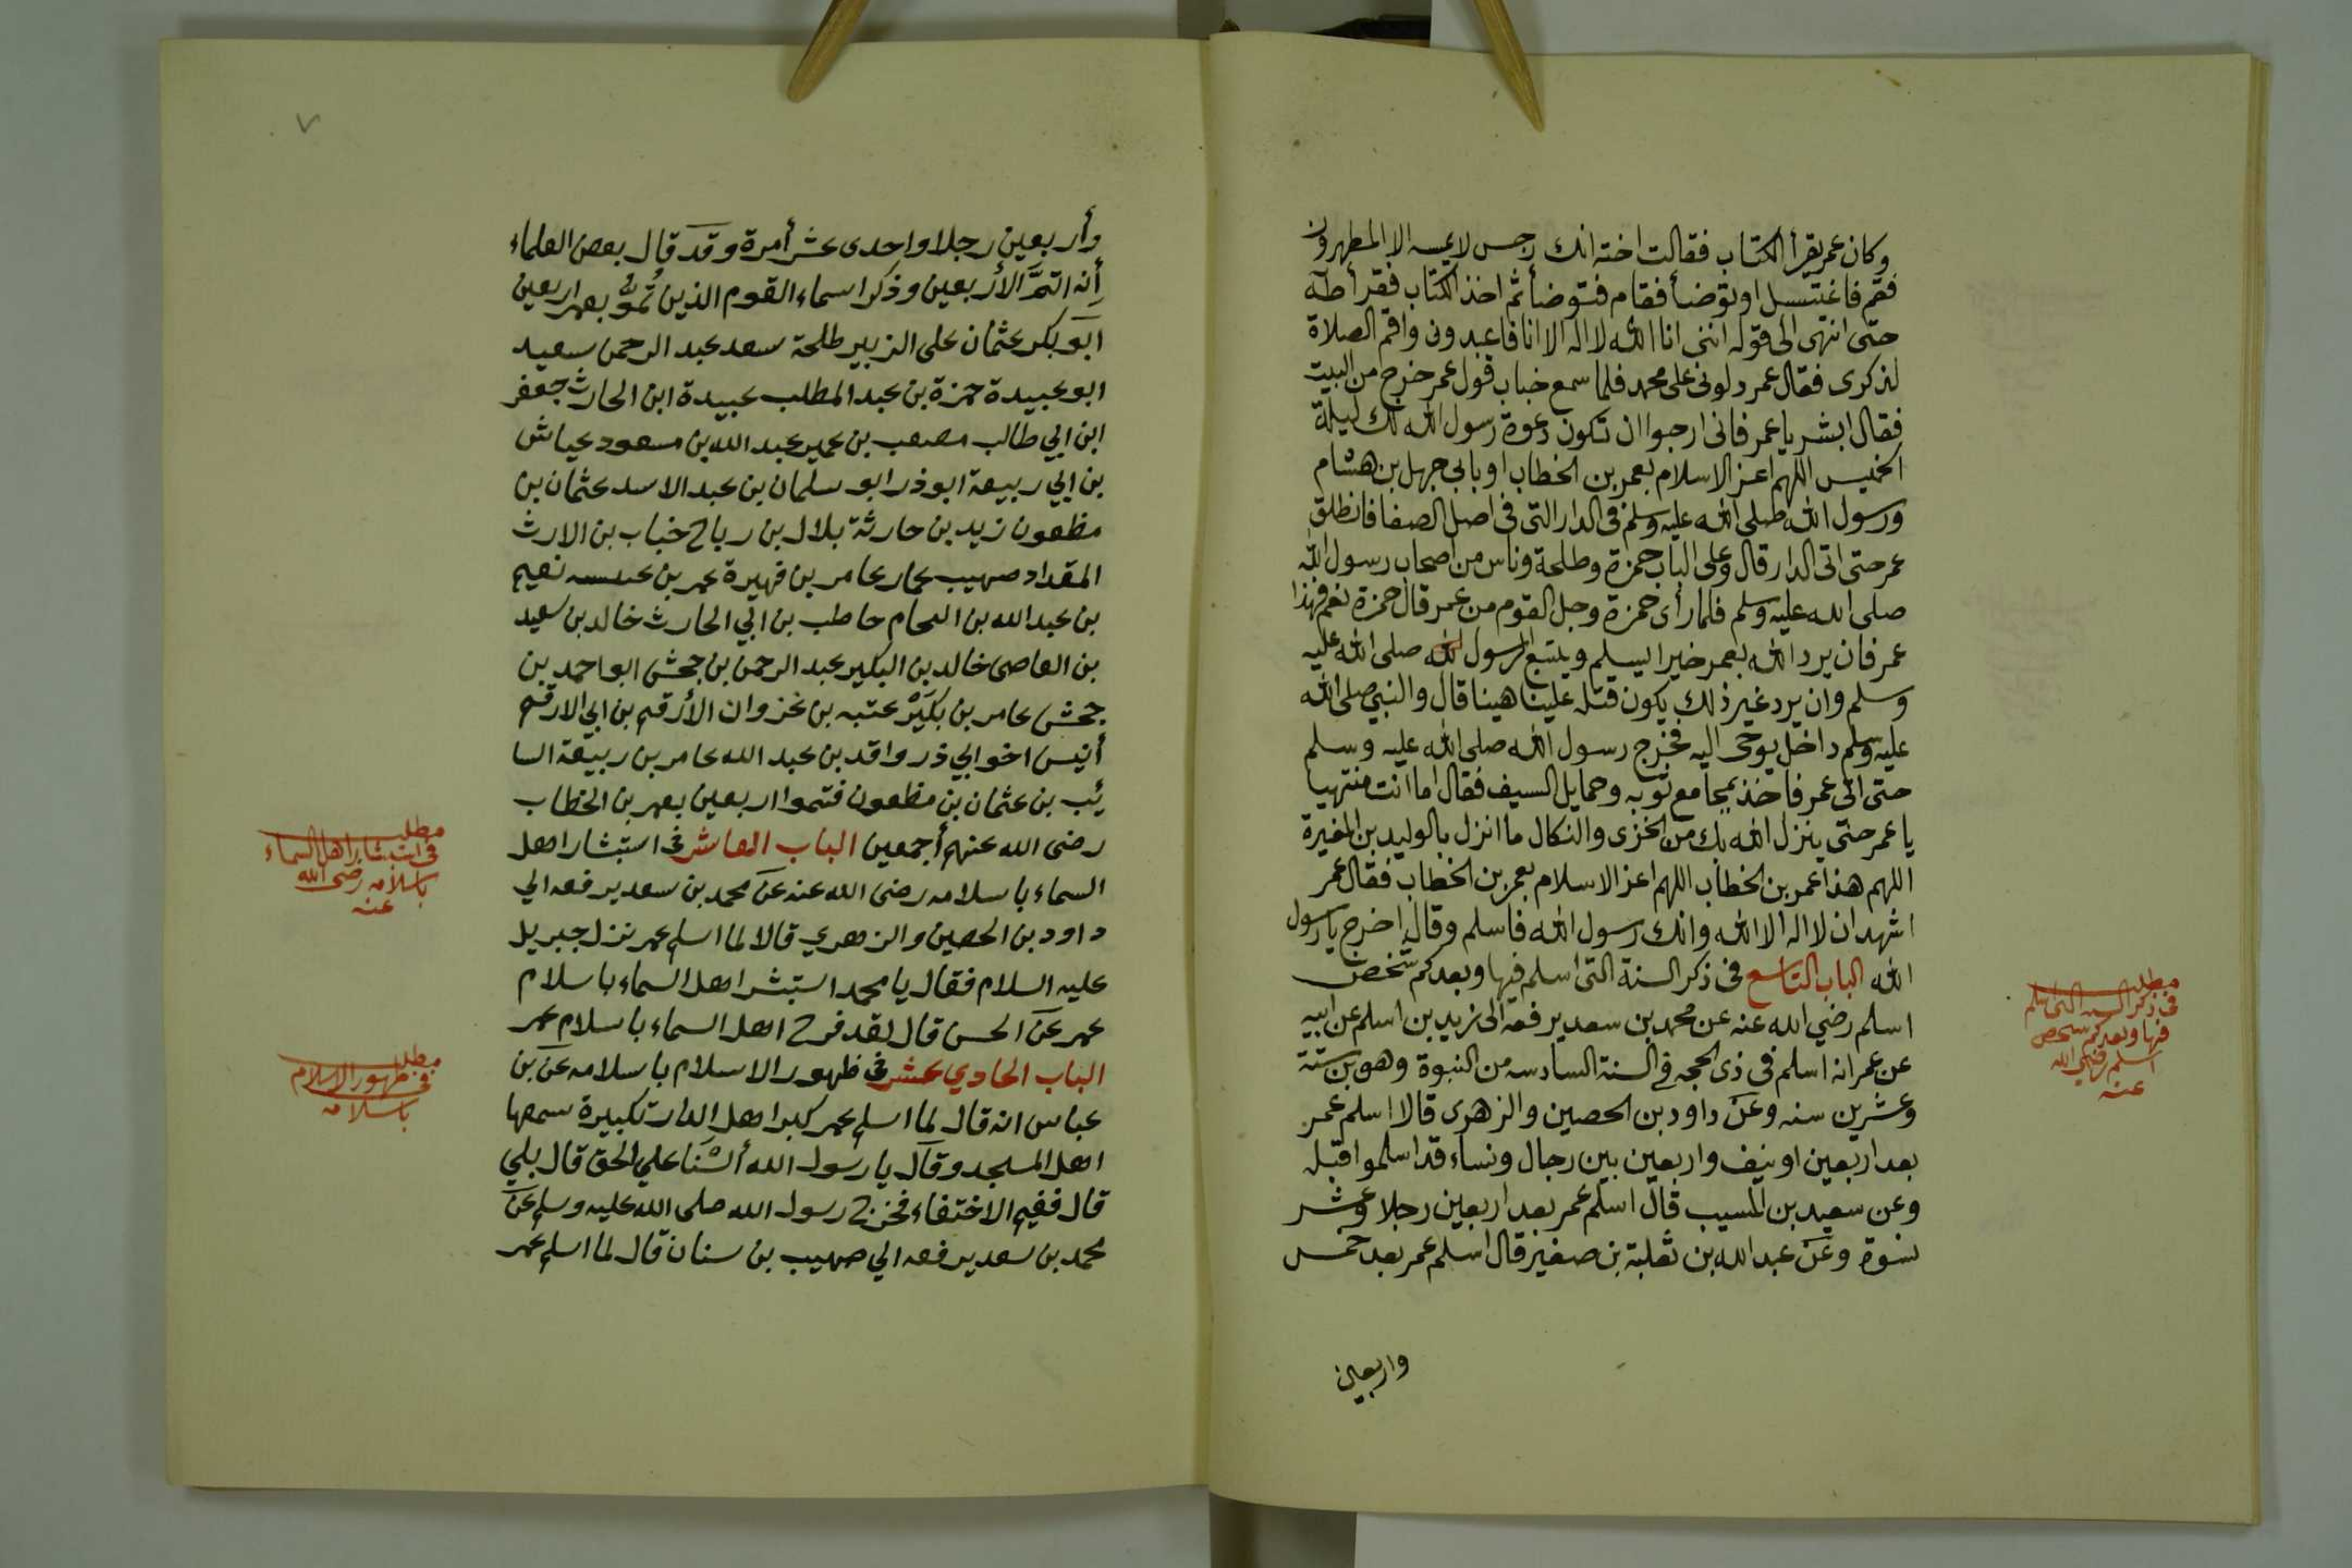 وكان عمر يقرأ الكتاب فقالت اخته انك رجس لا يمسه الا المطهرون
فقم فاغتسل او توضأ فقام فتوضأ ثم اخذ الكتاب فقرأ طه
حتى انتهى الى قوله انني انا الله لا اله الا انا فاعبدون واقم الصلاة
لذكرى فقال عمر دلونى على محمد فلما سمع خباب قول عمر خرج من البيت
فقال ابشر يا عمر فانى ارجوا ان تكون دعوة رسول الله لك ليلة
الخميس اللهم اعز الاسلام بعمر بن الخطاب او بابي جهل بن هشام
ورسول الله صلى الله عليه وسلم فى الدار التى فى اصل الصفا فانطلق
عمر حتى اتى الدار قال وعلى الباب حمزة وطلحة وناس من اصحاب رسول الله
صلى الله عليه وسلم فلما رأى حمزة وجل القوم من عمر قال حمزة نعم فهذا
عمر فان يرد الله بعمر خيرا يسلم ويتبع الرسول صلى الله عليه
وسلم وان يرد غير ذلك يكون قتله علينا هينا قال والنبي صلى الله
عليه وسلم داخل يوحى اليه فخرج رسول الله صلى الله عليه وسلم
حتى اتى عمر فاخذ بمجامع ثوبه وحمايل السيف فقال اما انت منتهيا
يا عمر حتى ينزل الله بك من الخزى والنكال ما انزل بالوليد بن المغيرة
اللهم هذا عمر بن الخطاب اللهم اعز الاسلام بعمر بن الخطاب فقال عمر
اشهد ان لا اله الا الله وانك رسول الله فاسلم وقال اخرج يا رسول
الله الباب التاسع فى ذكر السنة التى اسلم فيها وبعد كم شخص
اسلم رضي الله عنه عن محمد بن سعد يرفعه الى زيد بن اسلم عن ابيه
عن عمر انه اسلم فى ذى الحجه في السنة السادسه من النبوة وهو بن ستة
وعشرين سنه وعن داود بن الحصين والزهرى قالا اسلم عمر
بعد اربعين او نيف واربعين بين رجال ونساء قد اسلموا قبله
وعن سعيد بن المسيب قال اسلم عمر بعد اربعين رجلا وعشر
نسوة وعن عبد الله بن ثعلبة بن صغير قال اسلم عمر بعد خمس
واربعين
مطلب
فى ذكر السنه التى اسلم
فيها وبعد كم شخص
اسلم رضي الله
عنه
٧
وأربعين رجلا واحدى عشر أمرة وقد قال بعض العلماء
أنه اتمّ الأربعين وذكر اسماء القوم الذين تموا بعمر اربعين
ابو بكر عثمان على الزبير طلحة سعد عبد الرحمن سعيد
ابو عبيدة حمزة بن عبد المطلب عبيدة ابن الحارث جعفر
ابن ابي طالب مصعب بن عمير عبد الله بن مسعود عياش
بن ابي ربيعة ابو ذر ابو سلمان بن عبد الاسد عثمان بن
مظعون زيد بن حارثة بلال بن رباح خباب بن الارث
المقداد صهيب عمار عامر بن فهيرة عمر بن عبسه نعيم
بن عبد الله بن النحام حاطب بن ابي الحارث خالد بن سعيد
بن العاصى خالد بن البكير عبد الرحمن بن جحش ابو احمد بن
جحش عامر بن بكير عتبه بن غزوان الأرقم بن ابي الارقم
أنيس اخو ابي ذر واقد بن عبد الله عامر بن ربيعة السا
ئب بن عثمان بن مظعون فتموا اربعين بعمر بن الخطاب
رضى الله عنهم أجمعين الباب العاشر فى استبشار اهل
السماء باسلامه رضى الله عنه عن محمد بن سعد يرفعه الي
داود بن الحصين والزهري قالا لما اسلم عمر نزل جبريل
عليه السلام فقال يا محمد استبشر اهل السماء باسلام
عمر عن الحسن قال لقد فرح اهل السماء باسلام عمر
الباب الحادي عشر فى ظهور الاسلام باسلامه عن بن
عباس انه قال لما اسلم عمر كبر اهل الدار تكبيرة سمعها
اهل المسجد وقال يا رسول الله ألسنا علي الحق قال بلي
قال ففيم الاختفاء فخرج رسول الله صلى الله عليه وسلم عن
محمد بن سعد يرفعه الي صهيب بن سنان قال لما اسلم عمر
مطلب
فى استبشار اهل السماء
باسلامه رضى الله
عنه
مطلب
فى ظهور الاسلام
باسلامه